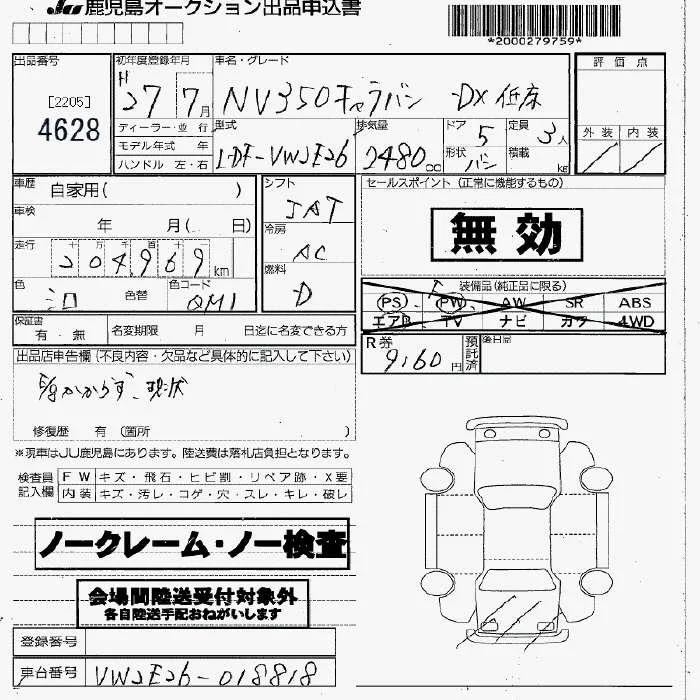 JU 鹿児島オークション出品申込書
*2000279759*
出品番号
[2205]
4628
初年度登録年月
H
27 7月
車名・グレード
NV350キャラバン DX 低床
評価点
外装 内装
ディーラー・並 行
モデル年式 年
ハンドル 左・右
型式
LDF-VW2E26
排気量
2480cc
ドア
5
形状
バン
定員
3人
積載
kg
車歴
自家用( )
車検
年 月( 日)
走行
十 万 千 百 十
204969km
色
シロ
色替
色コード
QM1
シフト
IAT
冷房
AC
燃料
D
セールスポイント (正常に機能するもの)
無 効
装備品(純正品に限る)
PS PW AW SR ABS
エアB TV ナビ カワ 4WD
保証書
有 無
名変期限 月 日迄に名変できる方
R券
9,160円
預託済
後日品
出品店申告欄 (不良内容・欠品など具体的に記入して下さい)
E/gかからず、現状
修復歴 有 (箇所 )
※現車はJU鹿児島にあります。陸送費は落札店負担となります。
検査員
記入欄
FW キズ・飛石・ヒビ割・リペア跡・X要
内装 キズ・汚レ・コゲ・穴・スレ・キレ・破レ
ノークレーム・ノー検査
会場間陸送受付対象外
各自陸送手配おねがいします
登録番号
車台番号
VW2E26-018818